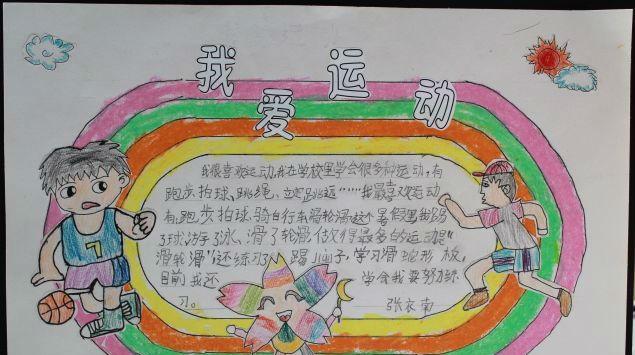 我爱运动
我很喜欢运动,我在学校里学会很多种运动,有
跑步拍球、跳绳、立定跳远……我最喜欢运动
有跑步拍球骑自行车滑轮滑这个暑假里我踢
了球游了泳、滑了轮滑做得最多的运动是“
滑轮滑”还练习了踢毽子,学习滑蛇形板,
目前我还 学会我要努力练
习。 张衣南
7